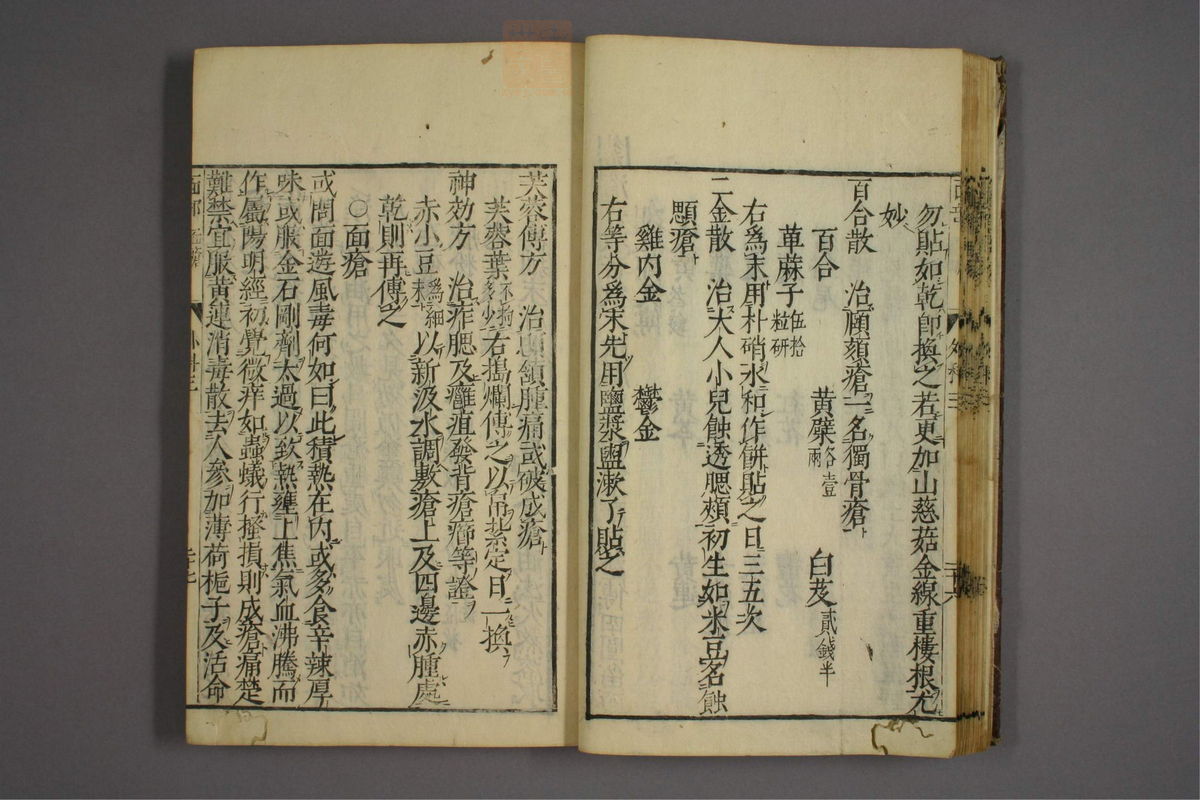 勿貼如乾即換之若更加山慈菇金線重樓根尤
妙
百合散　治頤頦瘡一名獨骨瘡
百合　黃蘗各壹兩　白芨貳錢半
萆麻子伍拾粒研
右爲末用朴硝水和作餅貼之日三五次
二金散　治大人小兒蝕透腮頰初生如米豆名蝕
顋瘡
雞内金　鬱金
右等分爲末先用鹽漿盥漱了貼之
芙蓉傳方　治腮頷腫痛或破成瘡
芙蓉葉不拘多少右搗爛傳之以帛紮定日一換
神効方　治痄腮及癰疽發背瘡癤等證
赤小豆爲細末以新汲水調敷瘡上及四邊赤腫處
乾則再傳之
○面瘡
或問面遊風毒何如曰此積熱在内或多食辛辣厚
味或服金石剛劑太過以致熱壅上焦氣血沸騰而
作屬陽明經初覺微痒如蟲蟻行搔損則成瘡痛楚
難禁宜服黃連消毒散去人參加薄荷梔子及活命